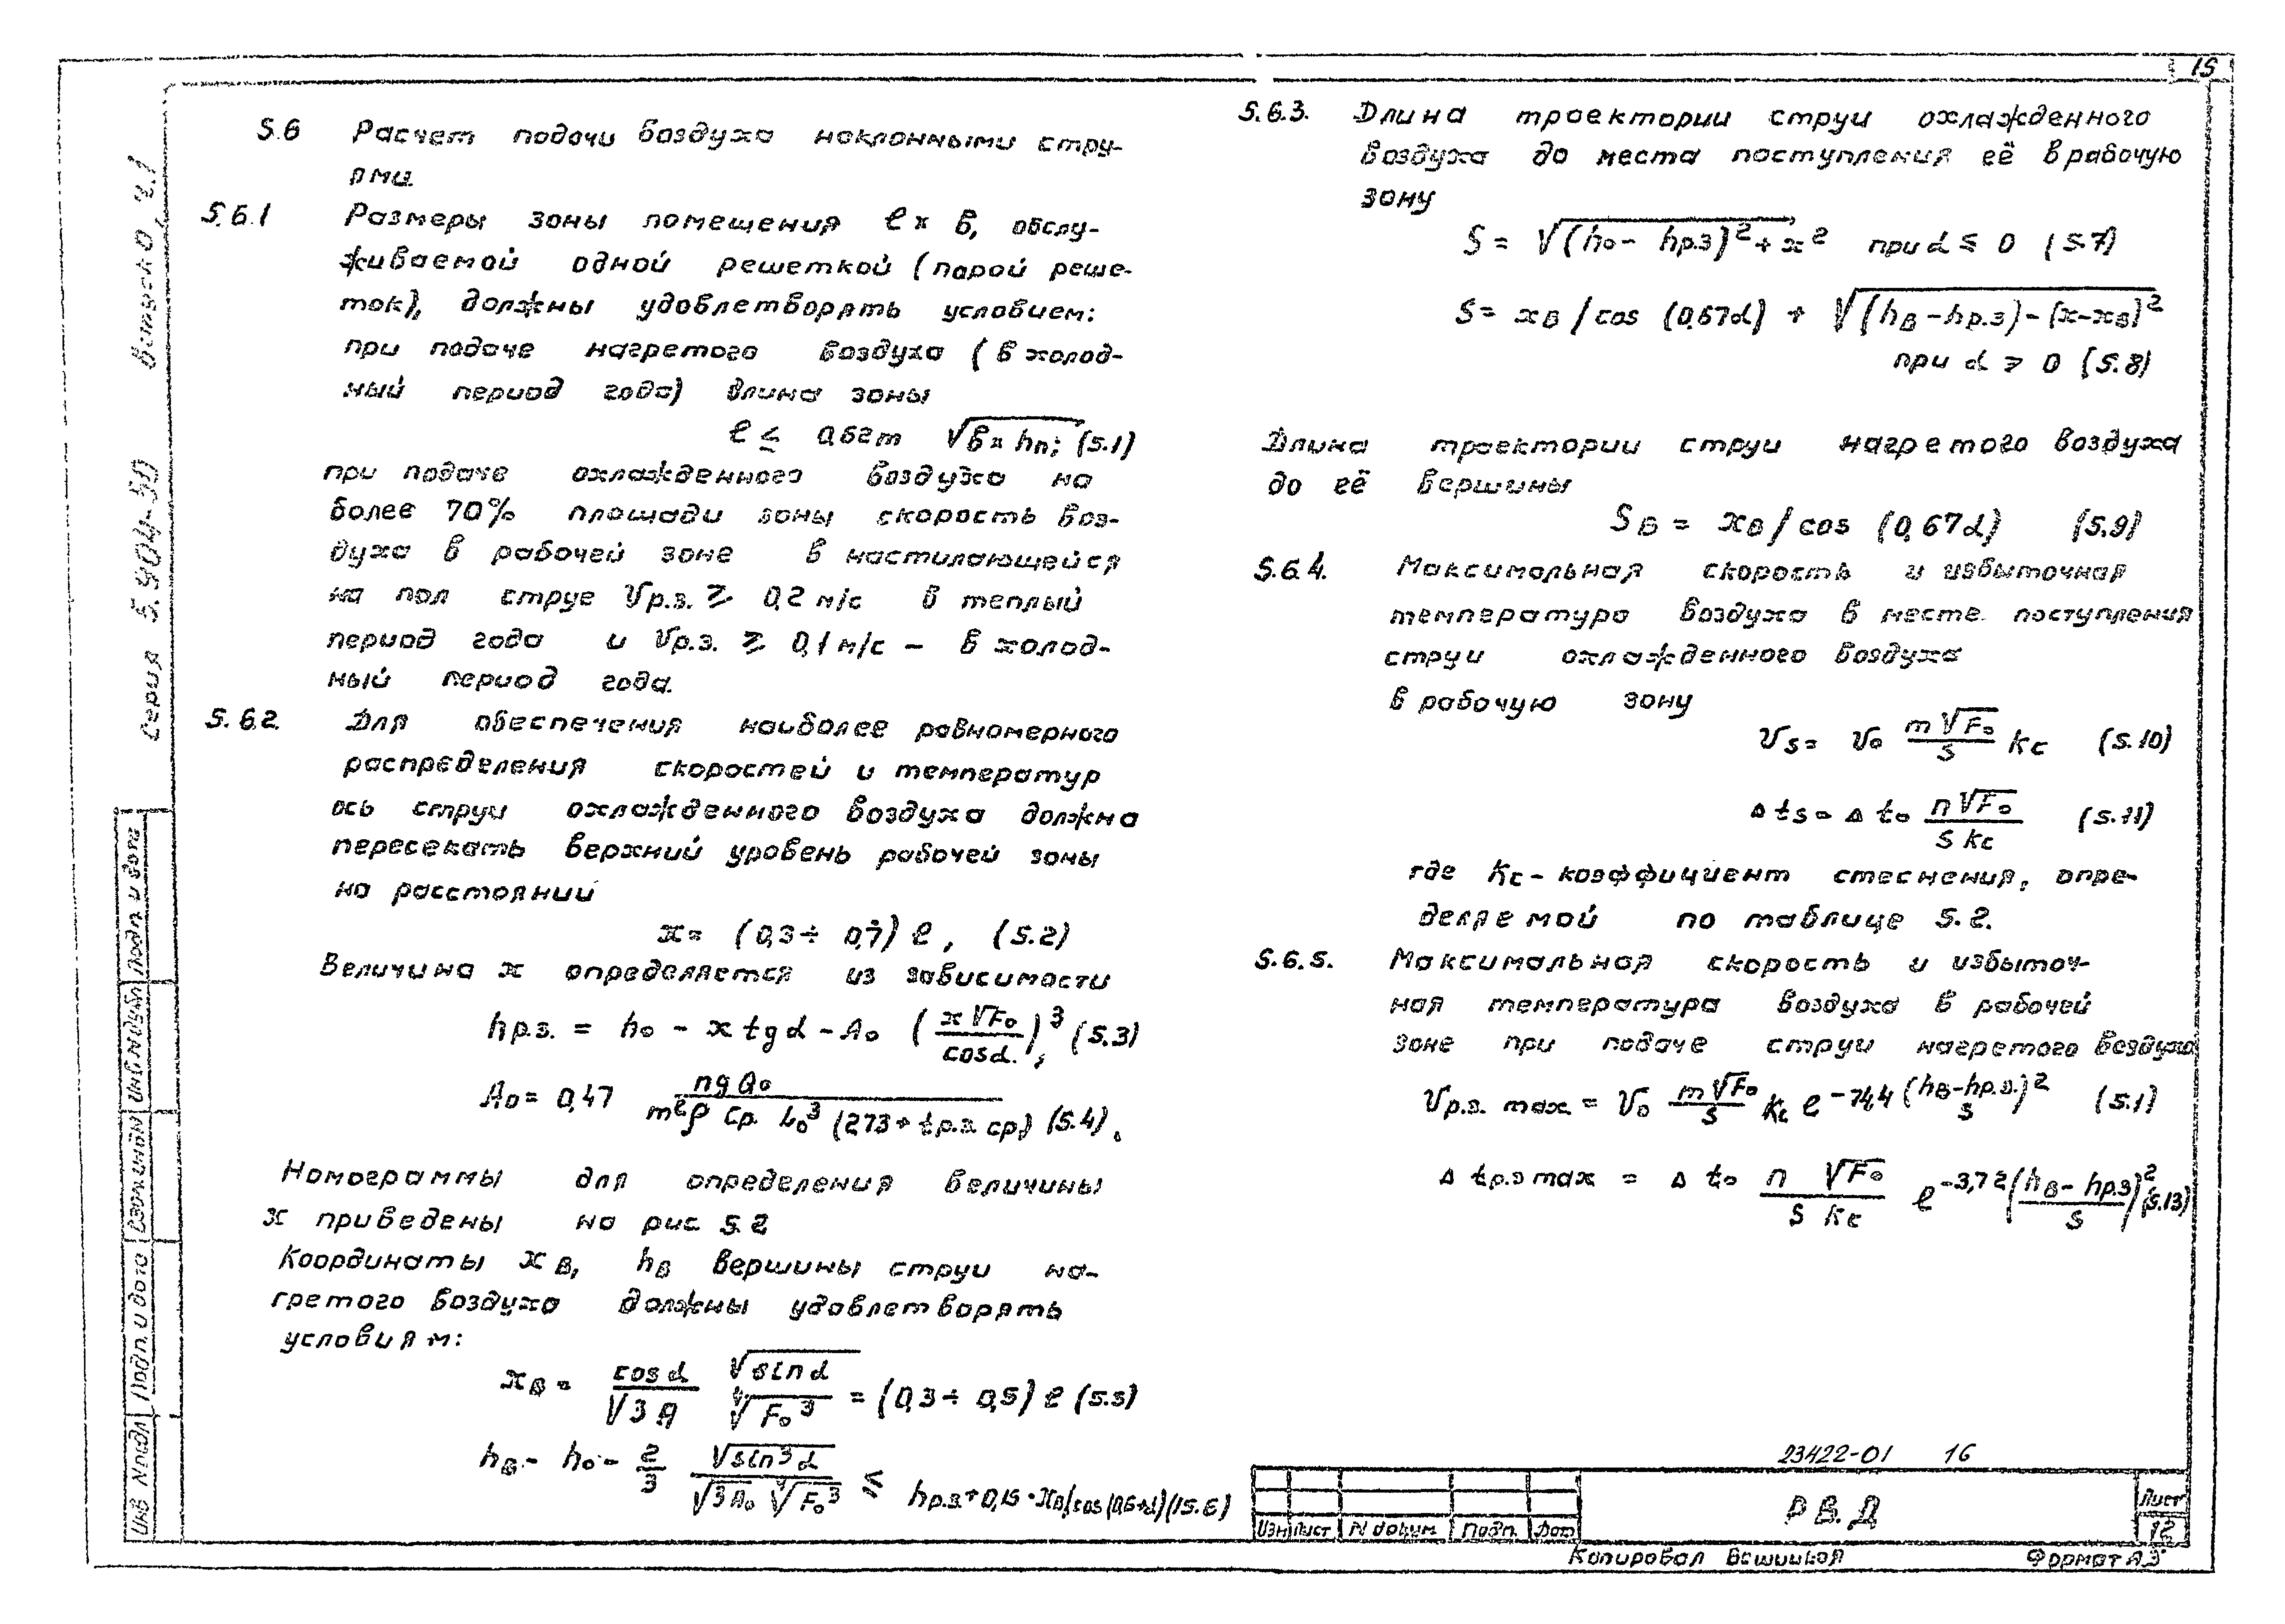 15
5.6 Расчет подачи воздуха наклонными стру-
ями.
5.6.1 Размеры зоны помещения ℓ × в, обслу-
живаемой одной решеткой (парой реше-
ток), должны удовлетворять условием:
при подаче нагретого воздуха (в холод-
ный период года) длина зоны
ℓ ≤ 0,62m √в × hп; (5.1)
при подаче охлажденного воздуха на
более 70% площади зоны скорость воз-
духа в рабочей зоне в настилающейся
на пол струе Vр.з. ≥ 0,2 м/с в теплый
период года и Vр.з. ≥ 0,1 м/с – в холод-
ный период года.
5.6.2. Для обеспечения наиболее равномерного
распределения скоростей и температур
ось струи охлажденного воздуха должна
пересекать верхний уровень рабочей зоны
на расстоянии
x = (0,3 ÷ 0,7) ℓ, (5.2)
Величина x определяется из зависимости
hр.з. = h₀ - x tg α - A₀ (x √F₀ / cos α.)³, (5.3)
A₀ = 0,47 n g Q₀ / m²ρ Cр. L₀³ (273 + tр.з. ср.) (5.4).
Номограммы для определения величины
x приведены на рис 5.2
Координаты xв, hв вершины струи на-
гретого воздуха должны удовлетворять
условиям:
xв = cos α / √3 А √sin α / ∜F₀³ = (0,3 ÷ 0,5) ℓ (5.5)
hв - h₀ - 2/3 √sin³ α / √3 А₀ ∜F₀³ ≤ hр.з. + 0,15 · xв/cos (0,67α) (5.6)
5.6.3. Длина траектории струи охлажденного
воздуха до места поступления её в рабочую
зону
S = √(h₀ - hр.з)² + x² при α ≤ 0 (5.7)
S = xв / cos (0,67α) + √(hв - hр.з) - (x - xв)²
при α ≥ 0 (5.8)
Длина траектории струи нагретого воздуха
до её вершины
Sв = xв / cos (0,67α) (5.9)
5.6.4. Максимальная скорость и избыточная
температура воздуха в месте поступления
струи охлажденного воздуха
в рабочую зону
Vs = V₀ m √F₀ / S Kc (5.10)
Δ ts = Δ t₀ n √F₀ / S Kc (5.11)
где Kc – коэффициент стеснения, опре-
деляемой по таблице 5.2.
5.6.5. Максимальная скорость и избыточ-
ная температура воздуха в рабочей
зоне при подаче струи нагретого воздуха
Vр.з. max = V₀ m √F₀ / S Kc e^-74,4 (hв - hр.з. / S)² (5.1)
Δ tр.з max = Δ t₀ n √F₀ / S Kc e^-3,72 (hв - hр.з / S)² (5.13)
23422-01 16
Р В. Д
Лист
12
Изм Лист N докум. Подп. Дат
Копировал
Формат А3
Серия 5.904-50 Выпуск 0, ч.1
Подп. и дата
Инв N дубл
Взам. инв N
Подп. и дата
Инв N подл